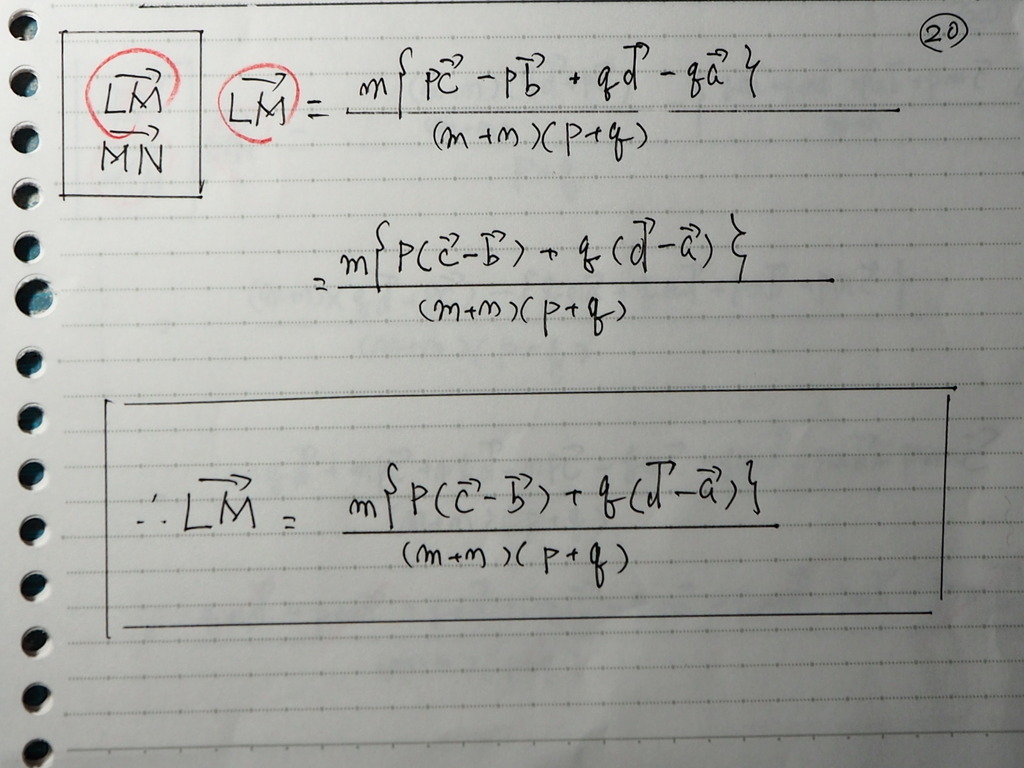 ⑳
LM→
MN→
LM→ = m{pc→ - pb→ + qd→ - qa→} / (m+n)(p+q)
= m{p(c→ - b→) + q(d→ - a→)} / (m+n)(p+q)
∴ LM→ = m{p(c→ - b→) + q(d→ - a→)} / (m+n)(p+q)